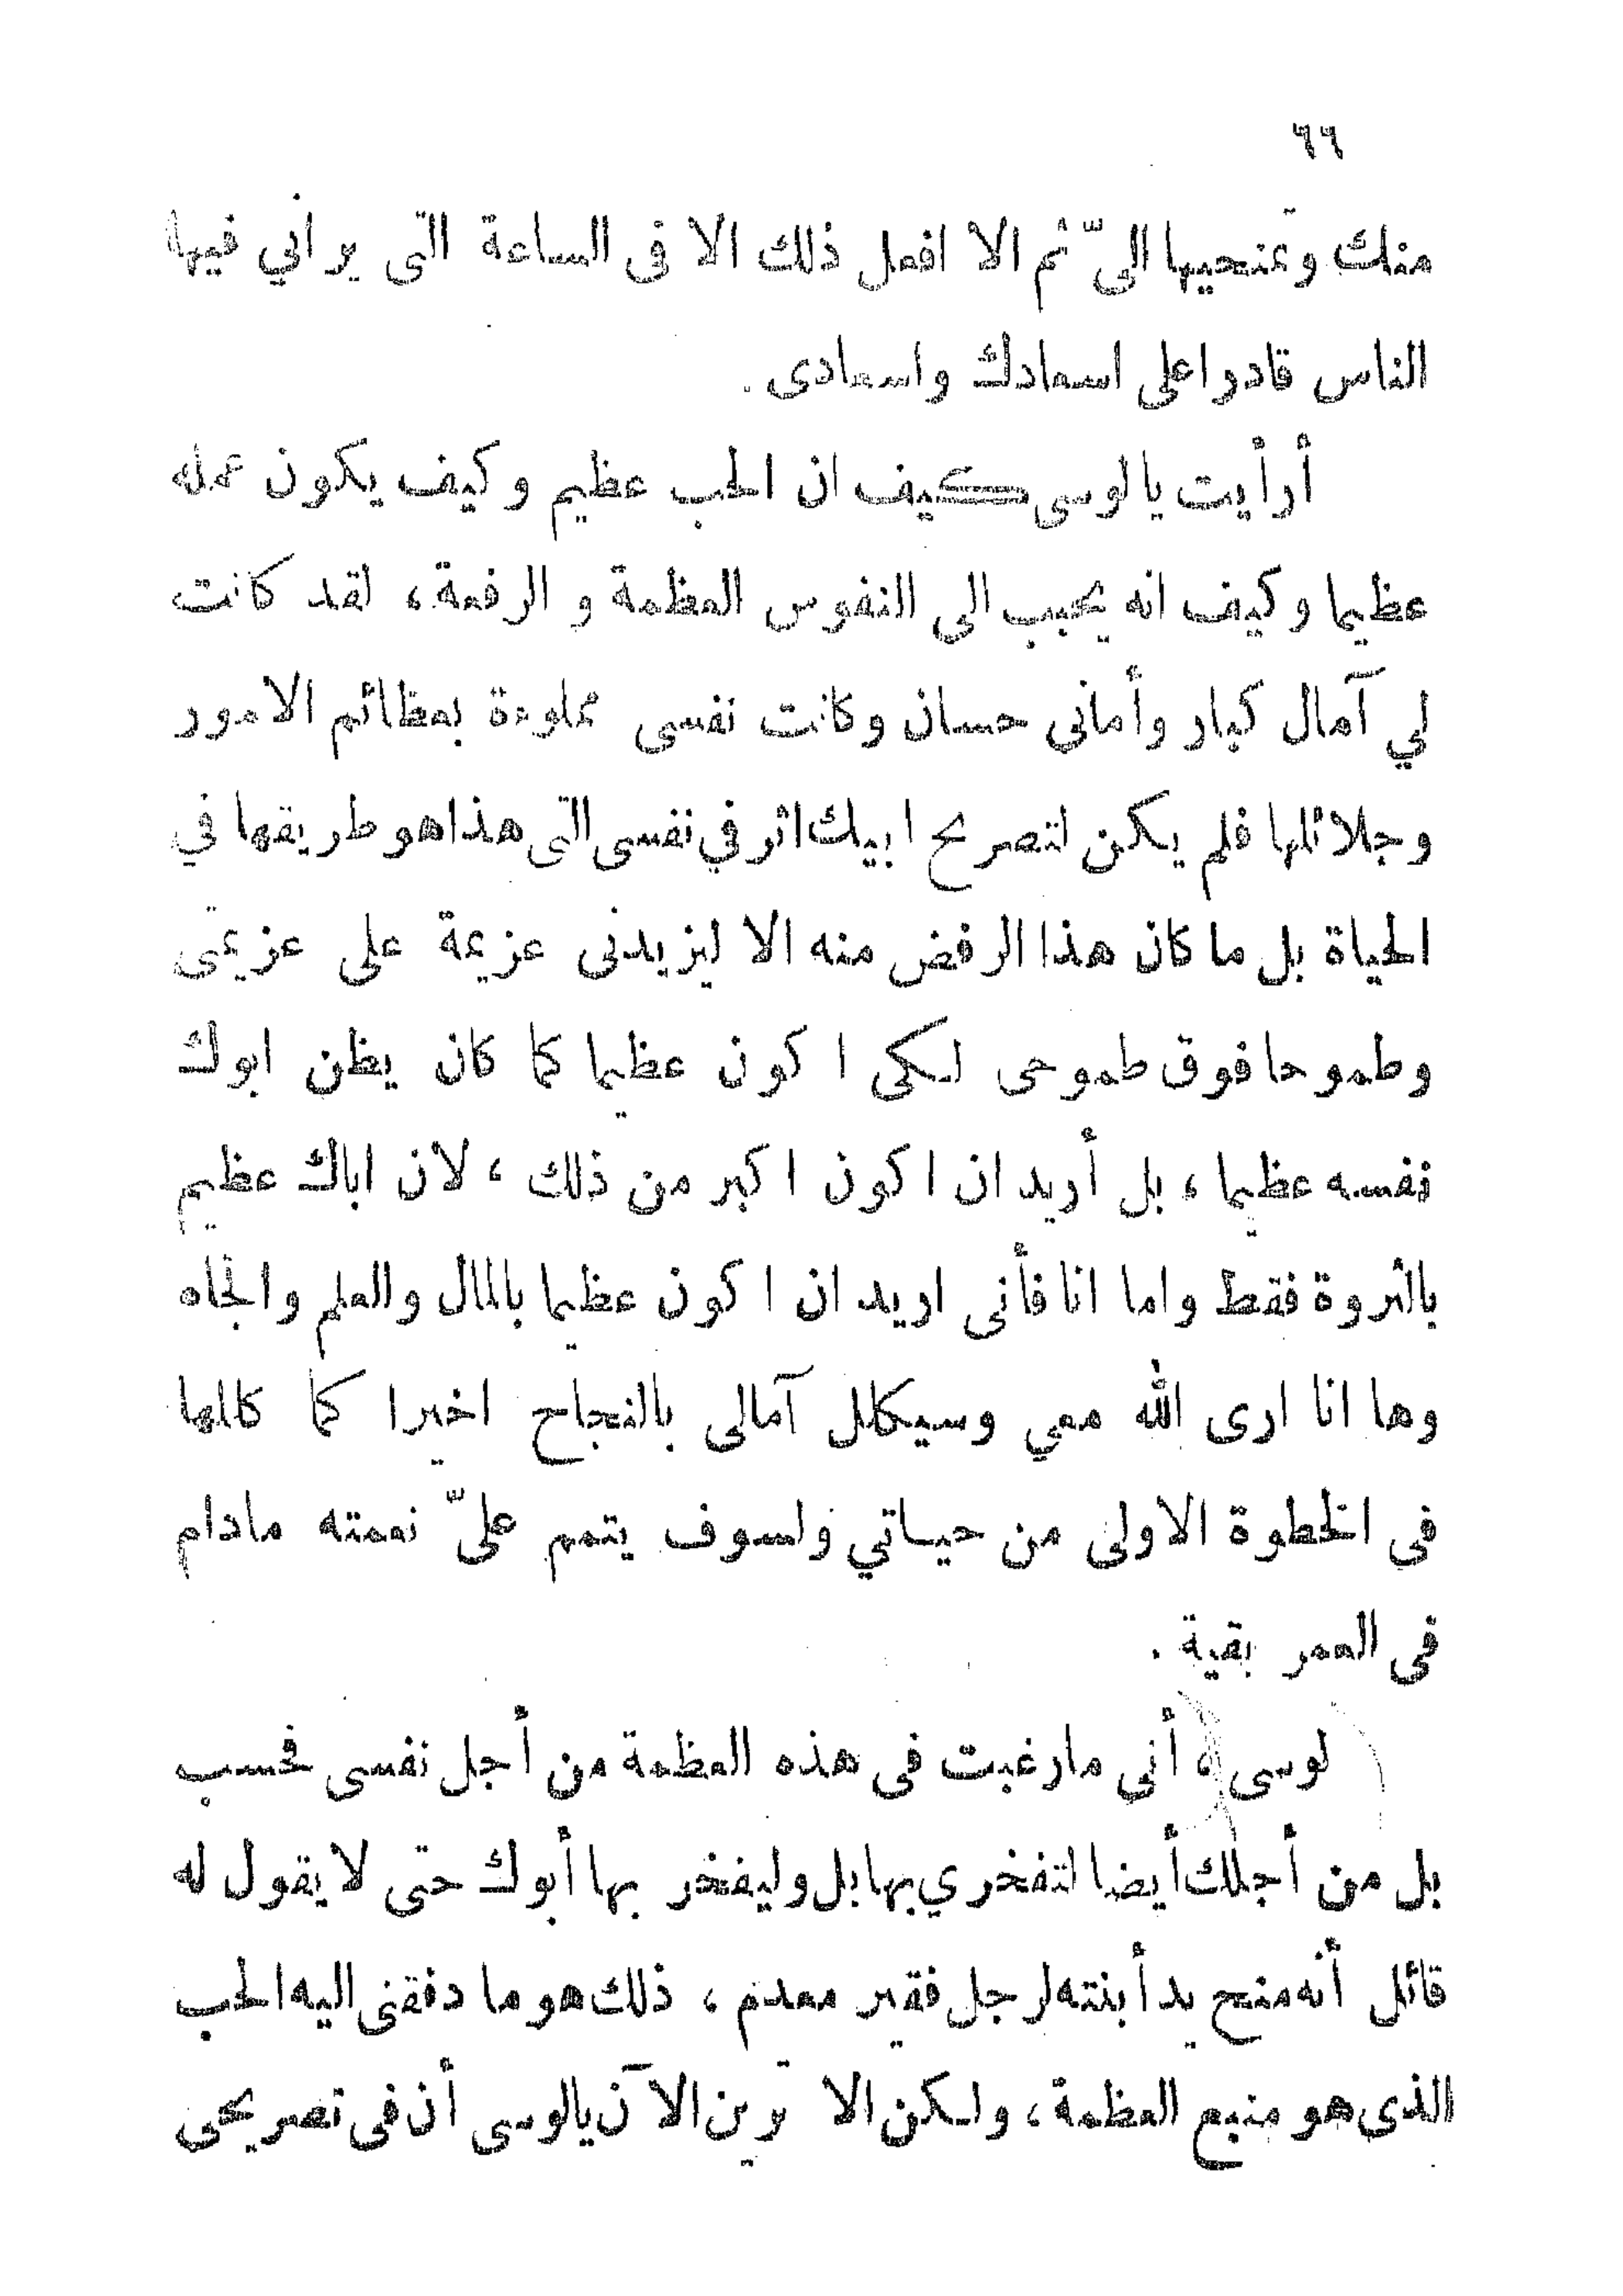 ٦٦
منك وتمنحيها الىّ ثم الا افعل ذلك الا فى الساعة التى يرانى فيها
الناس قادرا على اسعادك واسعادى .
أرأيت يالوسى كيف ان الحب عظيم وكيف يكون عمله
عظيما وكيف انه يحبب الى النفوس العظمة و الرفعة ، لقد كانت
لي آمال كبار وأمانى حسان وكانت نفسى مملوءة بعظائم الامور
وجلائلها فلم يكن لتصريح ابيك اثر في نفسى التى هذا هو طريقها في
الحياة بل ما كان هذا الرفض منه الا ليزيدنى عزيمة على عزيمتى
وطموحا فوق طموحى لكى اكون عظيما كما كان يظن ابوك
نفسه عظيما ، بل أريد ان اكون اكبر من ذلك ، لان اباك عظيم
بالثروة فقط واما انا فأنى اريد ان اكون عظيما بالمال والعلم والجاه
وها انا ارى الله معي وسيكلل آمالى بالنجاح اخيرا كما كللها
فى الخطوة الاولى من حياتي ولسوف يتمم علىّ نعمته مادام
فى العمر بقية .
لوسى ، أنى مارغبت فى هذه العظمة من أجل نفسى فحسب
بل من أجلك أيضا لتفخري بها بل وليفخر بها أبوك حتى لا يقول له
قائل أنه منح يد أبنته لرجل فقير معدم ، ذلك هو ما دفقنى اليه الحب
الذى هو منبع العظمة ، ولكن الا ترين الآن يالوسى أن فى تصريحى